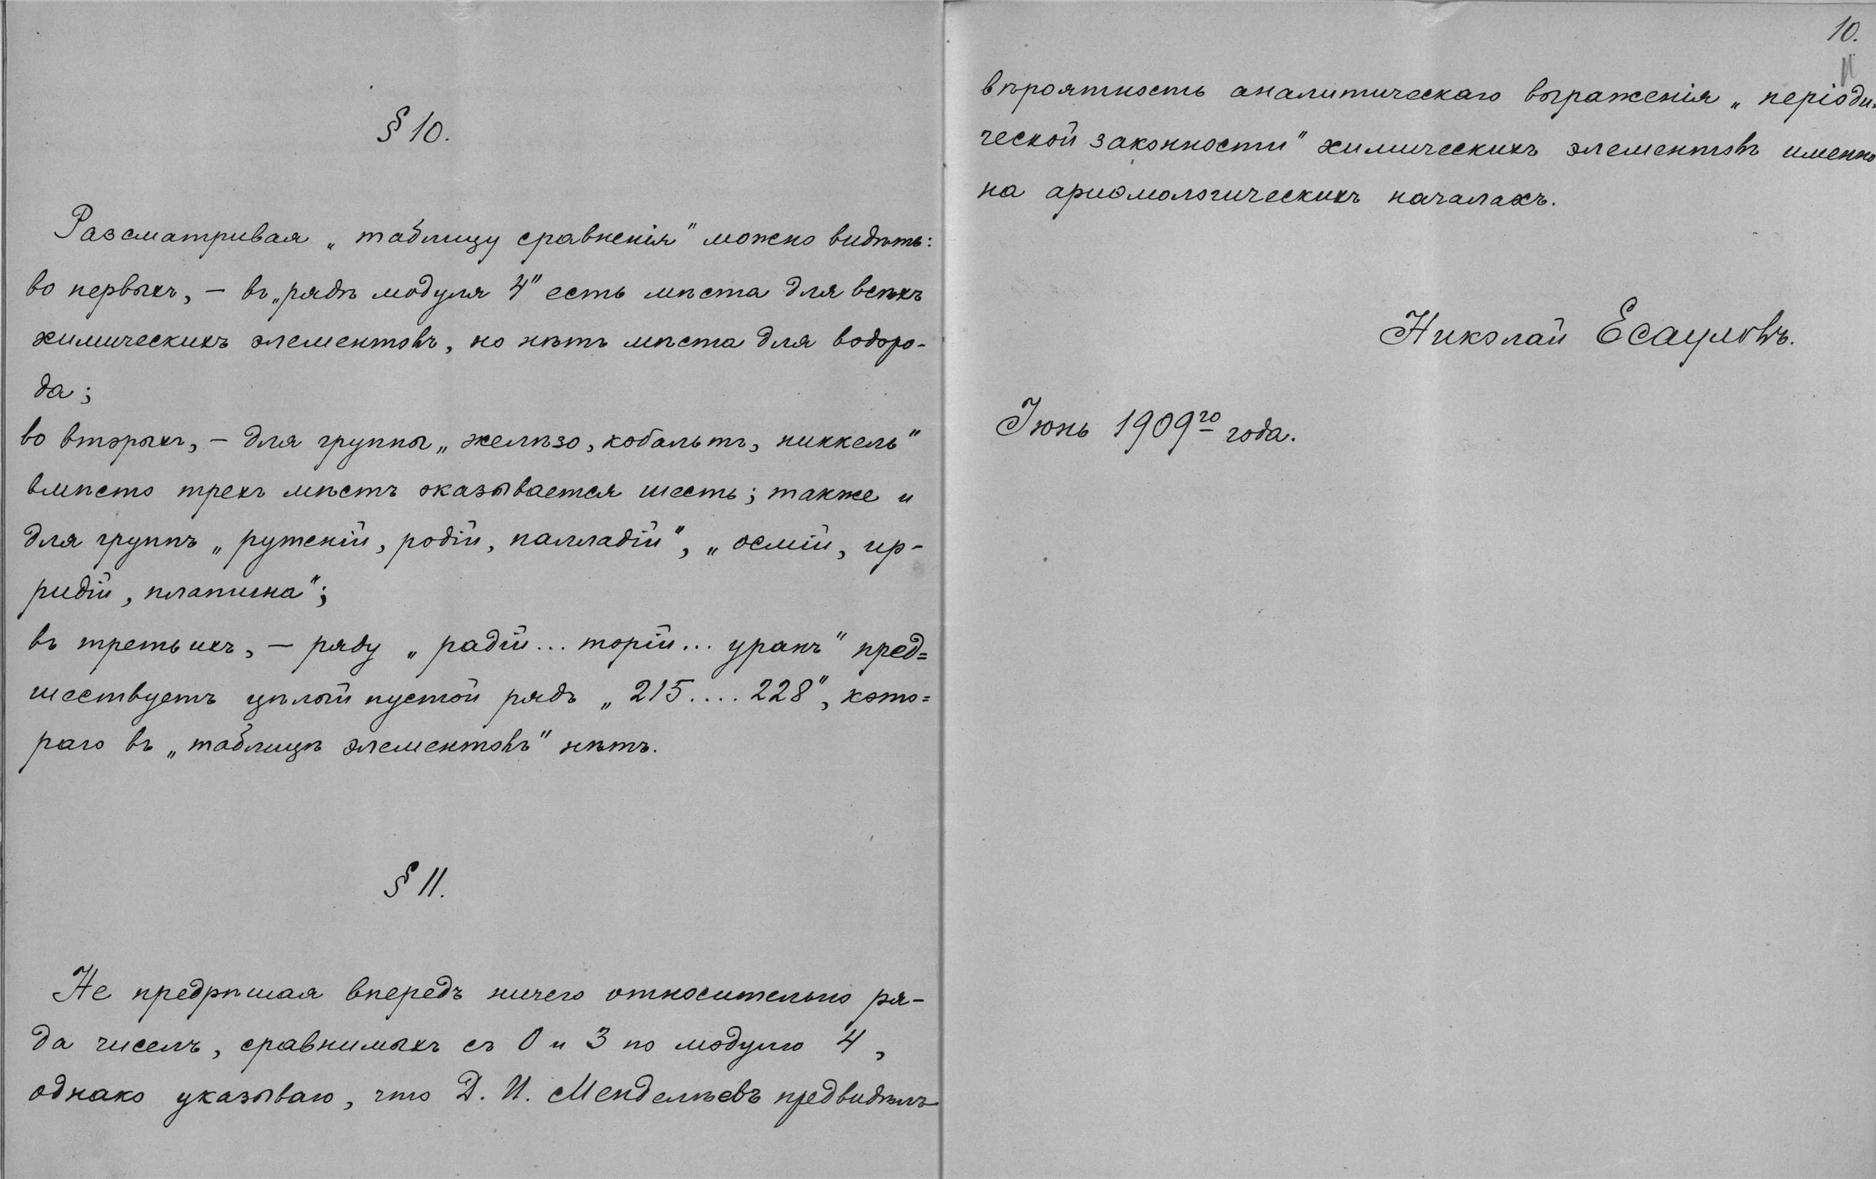 § 10.
Разсматривая „таблицу сравненія" можно видѣть:
во первыхъ, – въ „рядѣ модуля 4" есть мѣста для всѣхъ
химическихъ элементовъ, но нѣтъ мѣста для водоро-
да;
во вторыхъ, – для группы „желѣзо, кобальтъ, никкель"
вмѣсто трехъ мѣстъ оказывается шесть; также и
для группъ „рутеній, родій, палладій", „осмій, ир-
ридій, платина";
въ третьихъ, – ряду „радій... торій... уранъ" пред=
шествуетъ цѣлый пустой рядъ „215.... 228", кото=
раго въ „таблицѣ элементовъ" нѣтъ.
§ 11.
Не предрѣшая впередъ ничего относительно ря-
да чиселъ, сравнимыхъ съ 0 и 3 по модулю 4,
однако указываю, что Д. И. Менделѣевъ предвидѣлъ
10.
вѣроятность аналитическаго выраженія „періоди=
ческой законности" химическихъ элементовъ именно
на ариѳмологическихъ началахъ.
Николай Есауловъ.
Іюнь 1909го года.